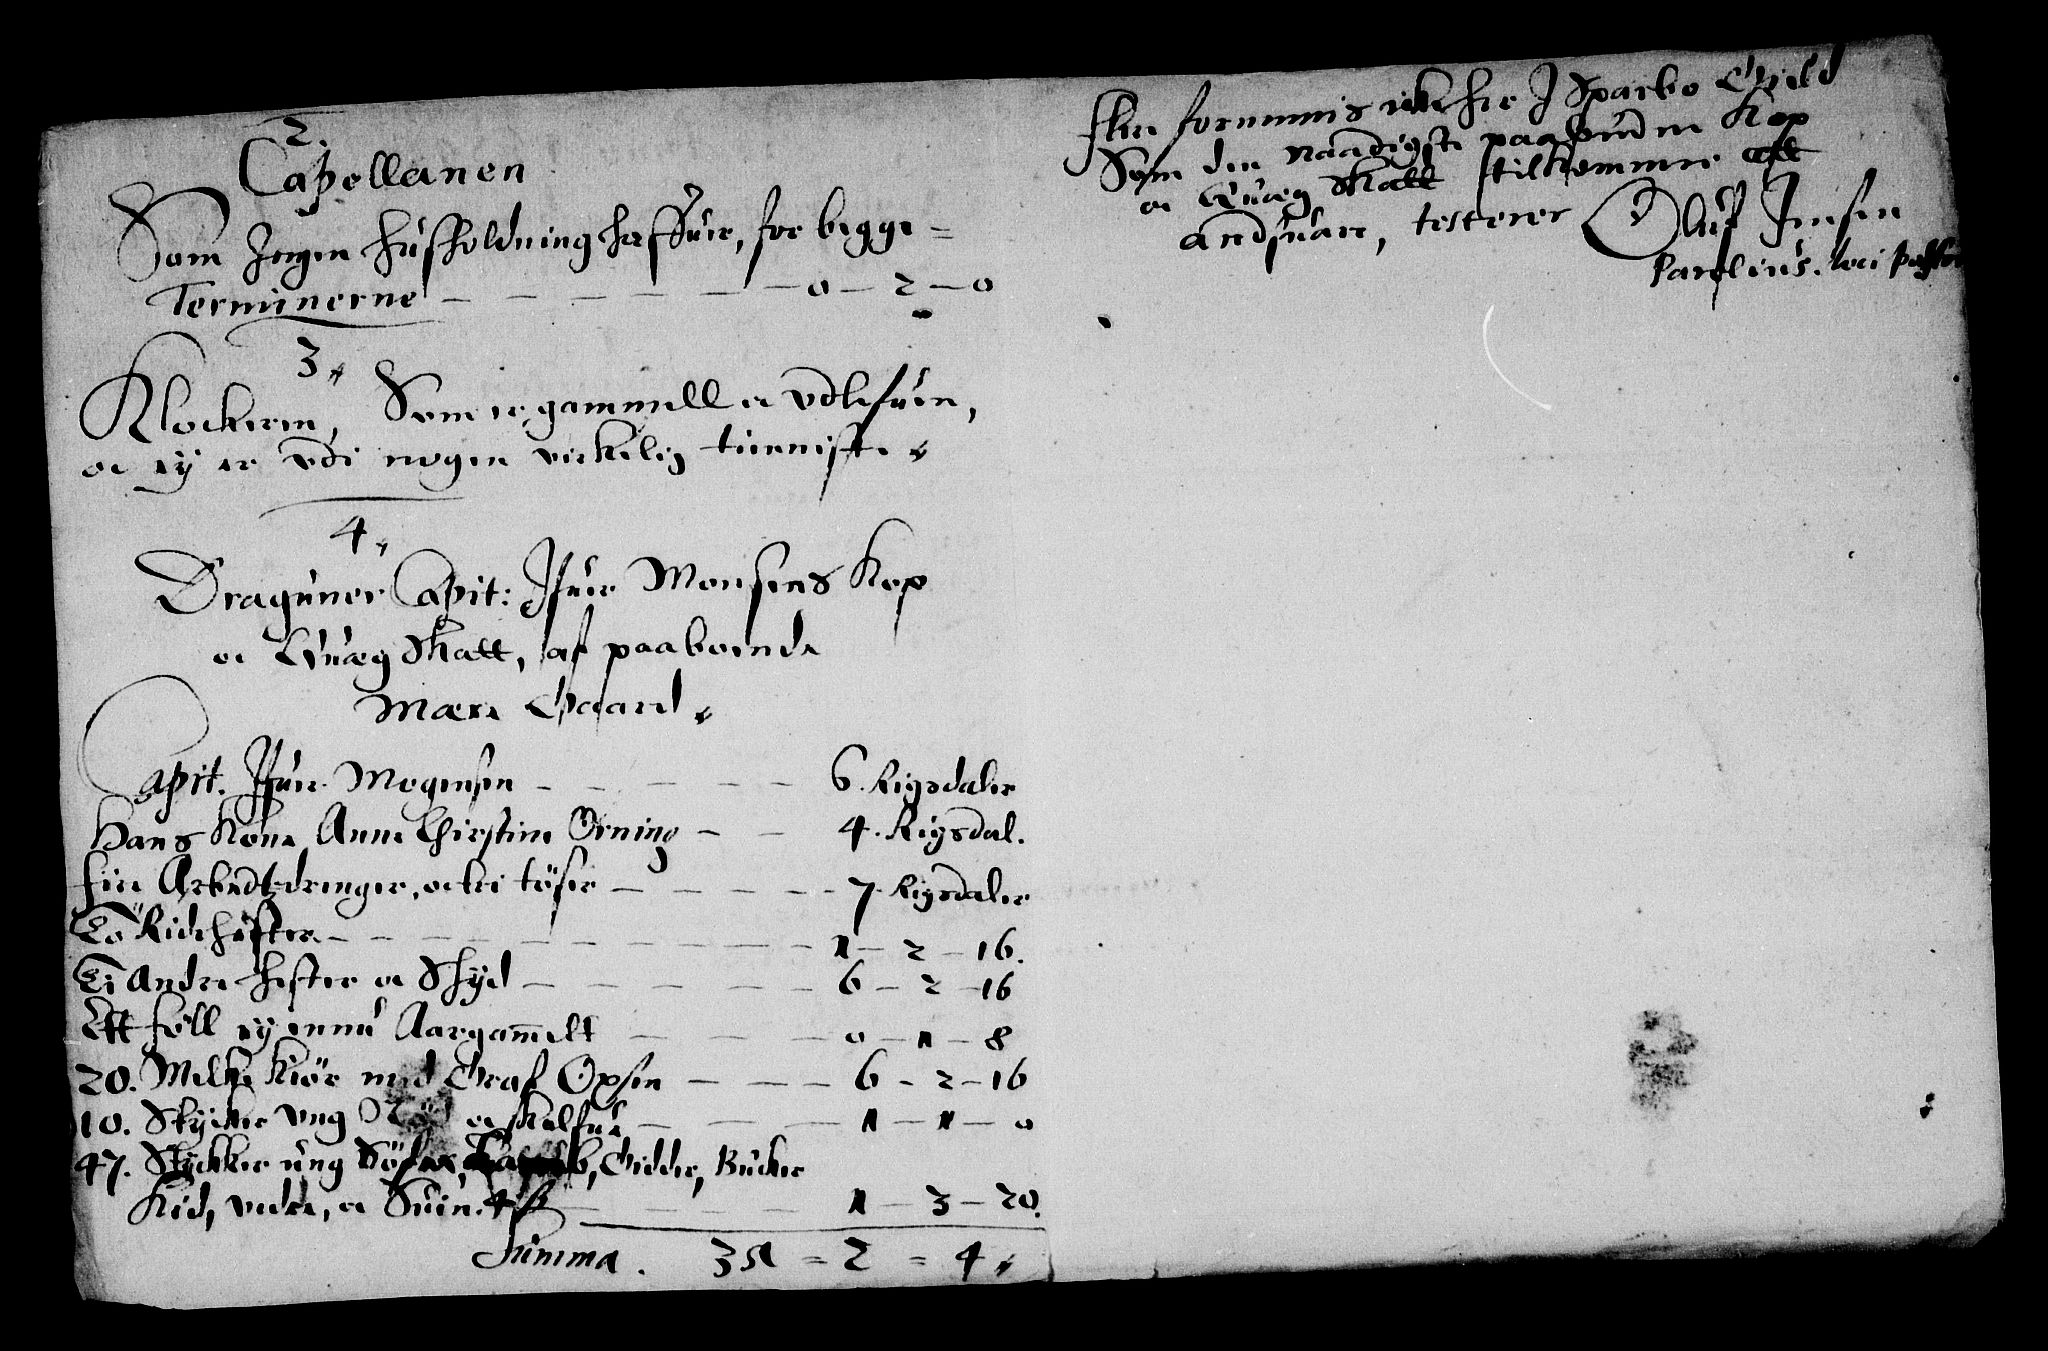 2.
Capellanen
Som Jngen Husholdning haffuer, for begge =
Terminerne — — — — — — o — 2 — o
3
Klockeren, Som er gammell oc vdlefuen,
oc ey er vdi nogen virkelig tienniste
4
Draguner Capit: Jfuer Monsens Kop
oc Quæg Skatt, af paaboende
Mære Gaard
Capit. Jfuer Mogensen — — — — — 6. Rigsdaler
Hans Kone Anne Chirstine Orning — — 4. Rigsdal.
fire Arbedtzdrenger, oc tri töser — — — — 7 Rigsdaler
To Ridehester — — — — — — — — 1 — 2 — 16.
Ti Andre hester oc Skyd — — — — — 6 — 2 — 16
Ett föll ey ennu Aargammelt — — — o — 1 — 8
20. Melke Kiör med Graf Oxsen — — — 6 - 2 - 16
10. Stycker vng oc Kalfue — — — — 1 — 1 — o
47. Styckker ung Söfuer, Gidder, Bucker
Kid, vedre, oc Suin. 4 ß — — — — 1 — 3 — 20.
Summa. 35 = 2 = 4
Fler fornimmis icke her J Sparbo Gield
Som den Naadigste paabudne Kop
oc Quæg Skatt tilkommer att
andsuare, testerer Oluf Jensen
loci Pastor